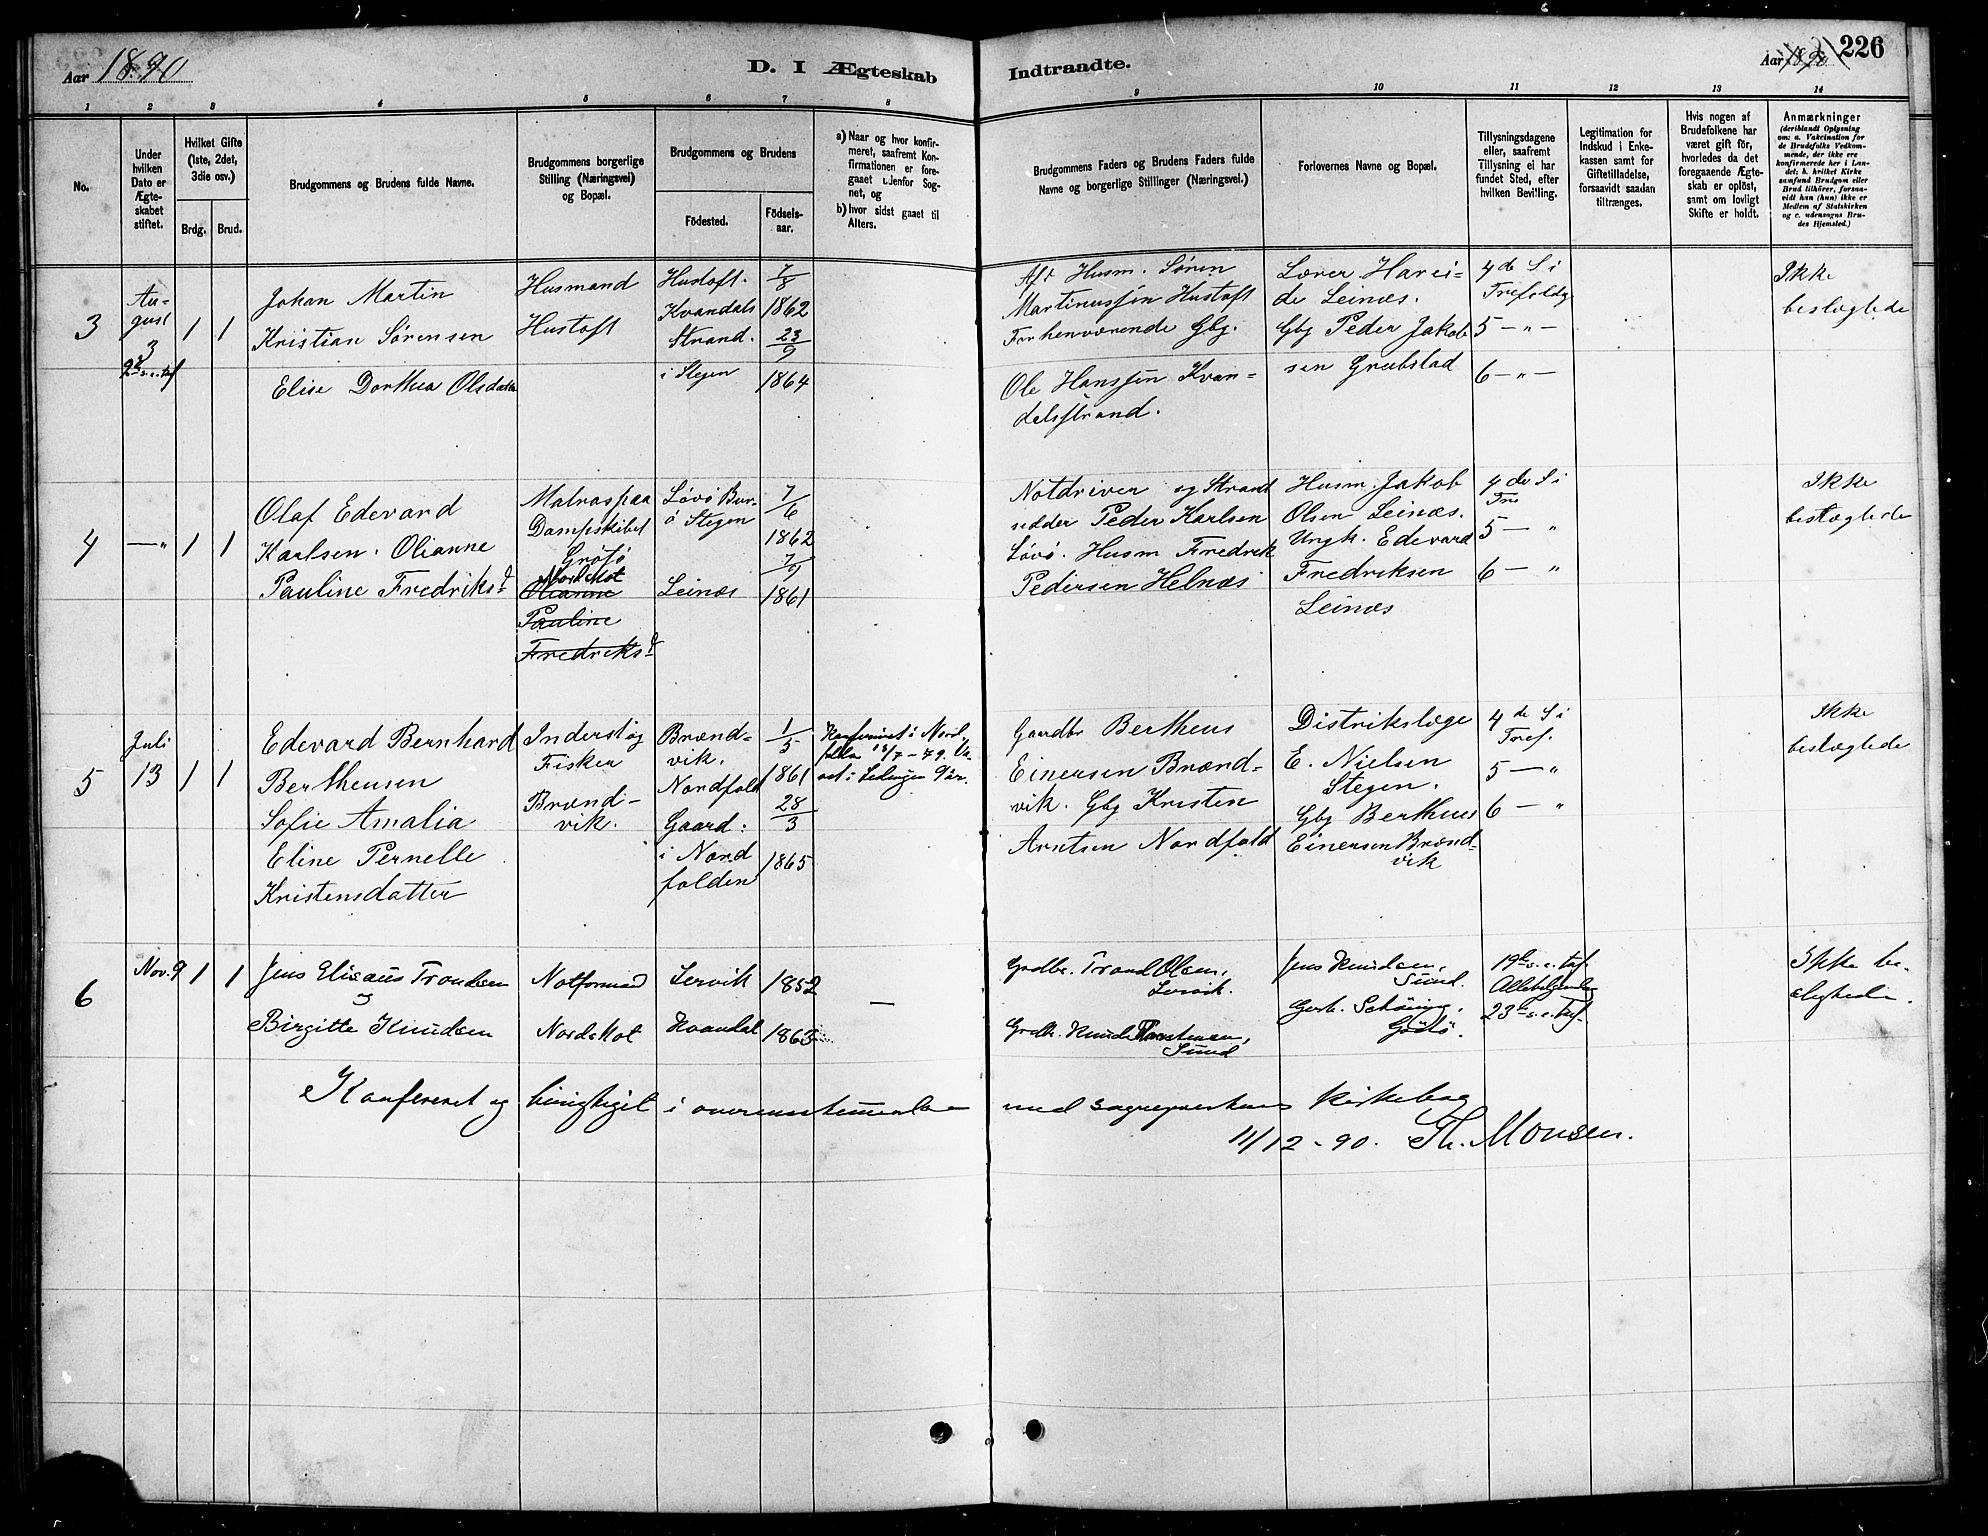 Aar 1890
D. I Ægteskab
Indtraadte.
Aar 1890
226
1 2 3 4 5 6 7 8 9 10 11 12 13 14
No.
Under hvilken Dato er Ægteskabet stiftet.
Hvilket Gifte (1ste, 2det, 3die osv.)
Brdg. Brud.
Brudgommens og Brudens fulde Navne.
Brudgommens borgerlige Stilling (Næringsvei) og Bopæl.
Brudgommens og Brudens
Födested.
Födselsaar.
a) Naar og hvor konfirmeret, saafremt Konfirmationen er foregaaet udenfor Sognet, og
b) hvor sidst gaaet til Alters.
Brudgommens Faders og Brudens Faders fulde Navne og borgerlige Stillinger (Næringsvei.)
Forlovernes Navne og Bopæl.
Tillysningsdagene eller, saafremt Tillysning ei har fundet Sted, efter hvilken Bevilling.
Legitimation for Indskud i Enkekassen samt for Giftetilladelse, forsaavidt saadan tiltrænges.
Hvis nogen af Brudefolkene har været gift för, hvorledes da det foregaaende Ægteskab er oplöst, samt om lovligt Skifte er holdt.
Anmærkninger
(deriblandt Oplysning om: a. Vakcination for de Brudefolks Vedkommende, der ikke ere konfirmerede her i Landet; b. hvilket Kirkesamfund Brudgom eller Brud tilhörer, forsaavidt han (hun) ikke er Medlem af Statskirken og c. udensogns Brudes Hjemsted.)
3
August
3
1 1
Johan Martin
Kristian Sørensen
Elise Dorthea Olsdatter
Husmand
Hustoft
Hustoft.
Kvandals
Strand.
i Stegen
7/8
1862
23/9
1864
Husm. Søren
Martinussen Hustoft
Forhenværende Gbg.
Ole Hanssen Kvan-
delsstrand.
Lærer Harei-
de Leinæs.
Gbg Peder Jakob-
sen Grubstad
4de S i
Trefoldg
5 — „ —
6 — „ —
Ikke
beslægtede
4
— „
1 1
Olaf Edevard
Karlsen. Olianne
Pauline Fredriksd
Matros paa
Dampskibet
Grøtø
Nordskot
Olianne
Pauline
Fredriksd
Løvø Bur-
ø Stegen
Leinæs
7/6
1862
7/9
1861
Notdriver og Strand
sidder Peder Karlsen
Løvø. Husm Fredrik
Pedersen Helnæs
Husm. Jakob
Olsen Leinæs.
Ungk. Edevard
Fredriksen
Leinæs
4de S i
Tre
5 — „
6 — „
Ikke
beslægtede
5
Juli
13
1 1
Edevard Bernhard
Bertheusen
Sofie Amalia
Eline Pernelle
Kristensdatter
Inderst og
Fisker
Brænd-
vik.
Brænd-
vik.
Nordfold
Gaard:
i Nord
folden
1/5
1861
28/3
1865
Konfirmeret i Nord-
folden 13/7-79.
Gaardbr Bertheus
Einersen Brænd-
vik. Gbg Kristen
Arntsen Nordfold
Distriktslæge
E. Nielsen
Stegen.
Gbg Bertheus
Einersen Brænd-
vik
4de S i
Tref.
5 — „
6 — „
Ikke
beslægtede
6
Nov. 9
1 1
Jens Elisæus Trondsen
Birgitte Knudsen
Notformand
Nordskot
Servik
Kvandal
1852
1863
—
Grdbr. Trond Olsen,
Servik.
Grdbr. Knud Torstensen,
Sund
Jens Knudsen,
Sund.
Gerh. Schöning,
Grötö.
19de s. e. tref.
Allehelgensdag
23de s. e. tref.
Ikke be-
slegtede.
Konfereret og berigtiget i overensstemmelse med sogneprestens kirkebog
11/12-90. Th. Monsen.